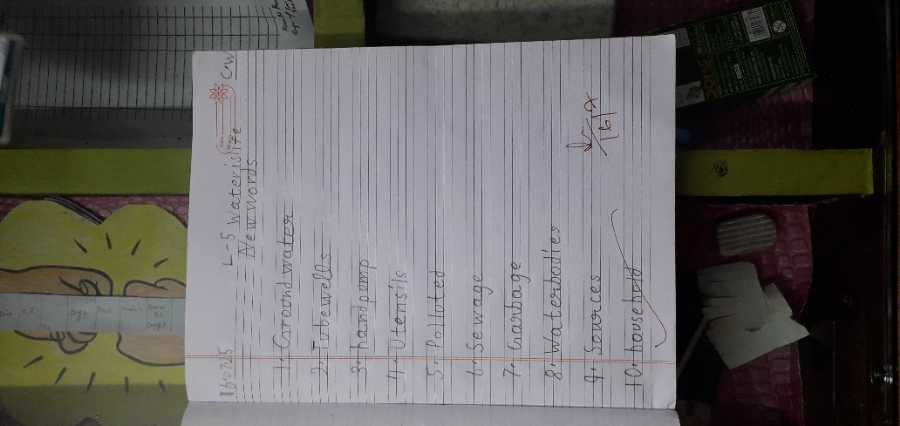 C.W
L-5 Water is life
New words
1. Groundwater
2. Tubewells
3. handpump
4. Utensils
5. Polluted
6. Sewage
7. Garbage
8. Waterbodies
9. Sources
10. household